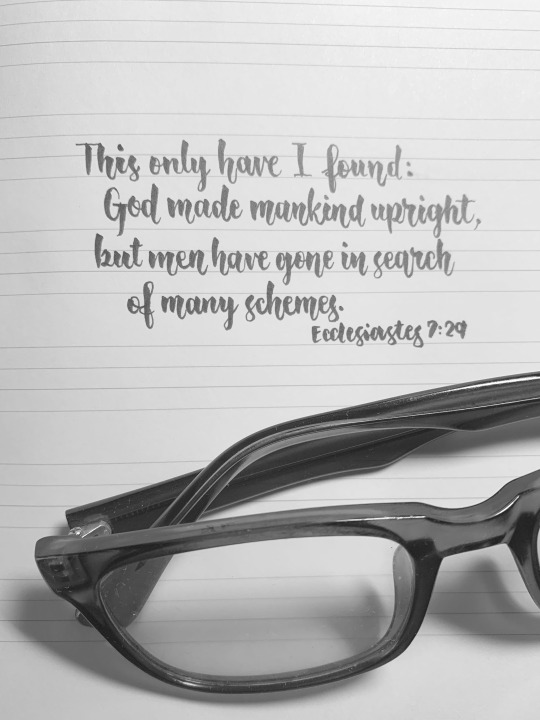 This only have I found:
God made mankind upright,
but men have gone in search
of many schemes.
Ecclesiastes 7:29